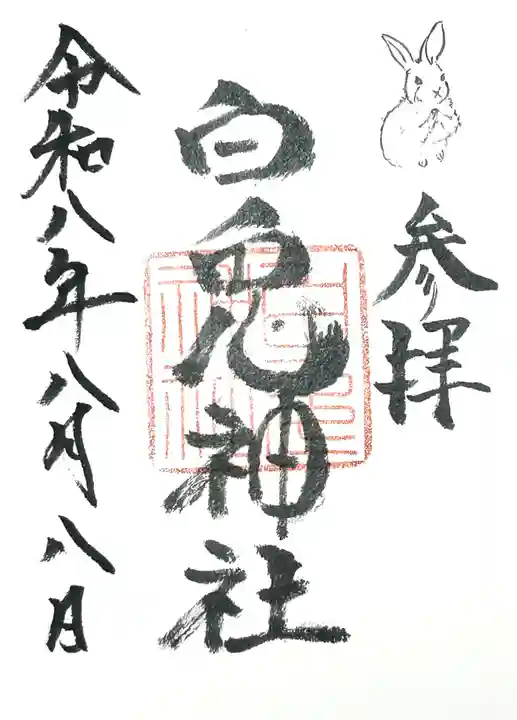 参拝
白兎神社
令和八年八月八日